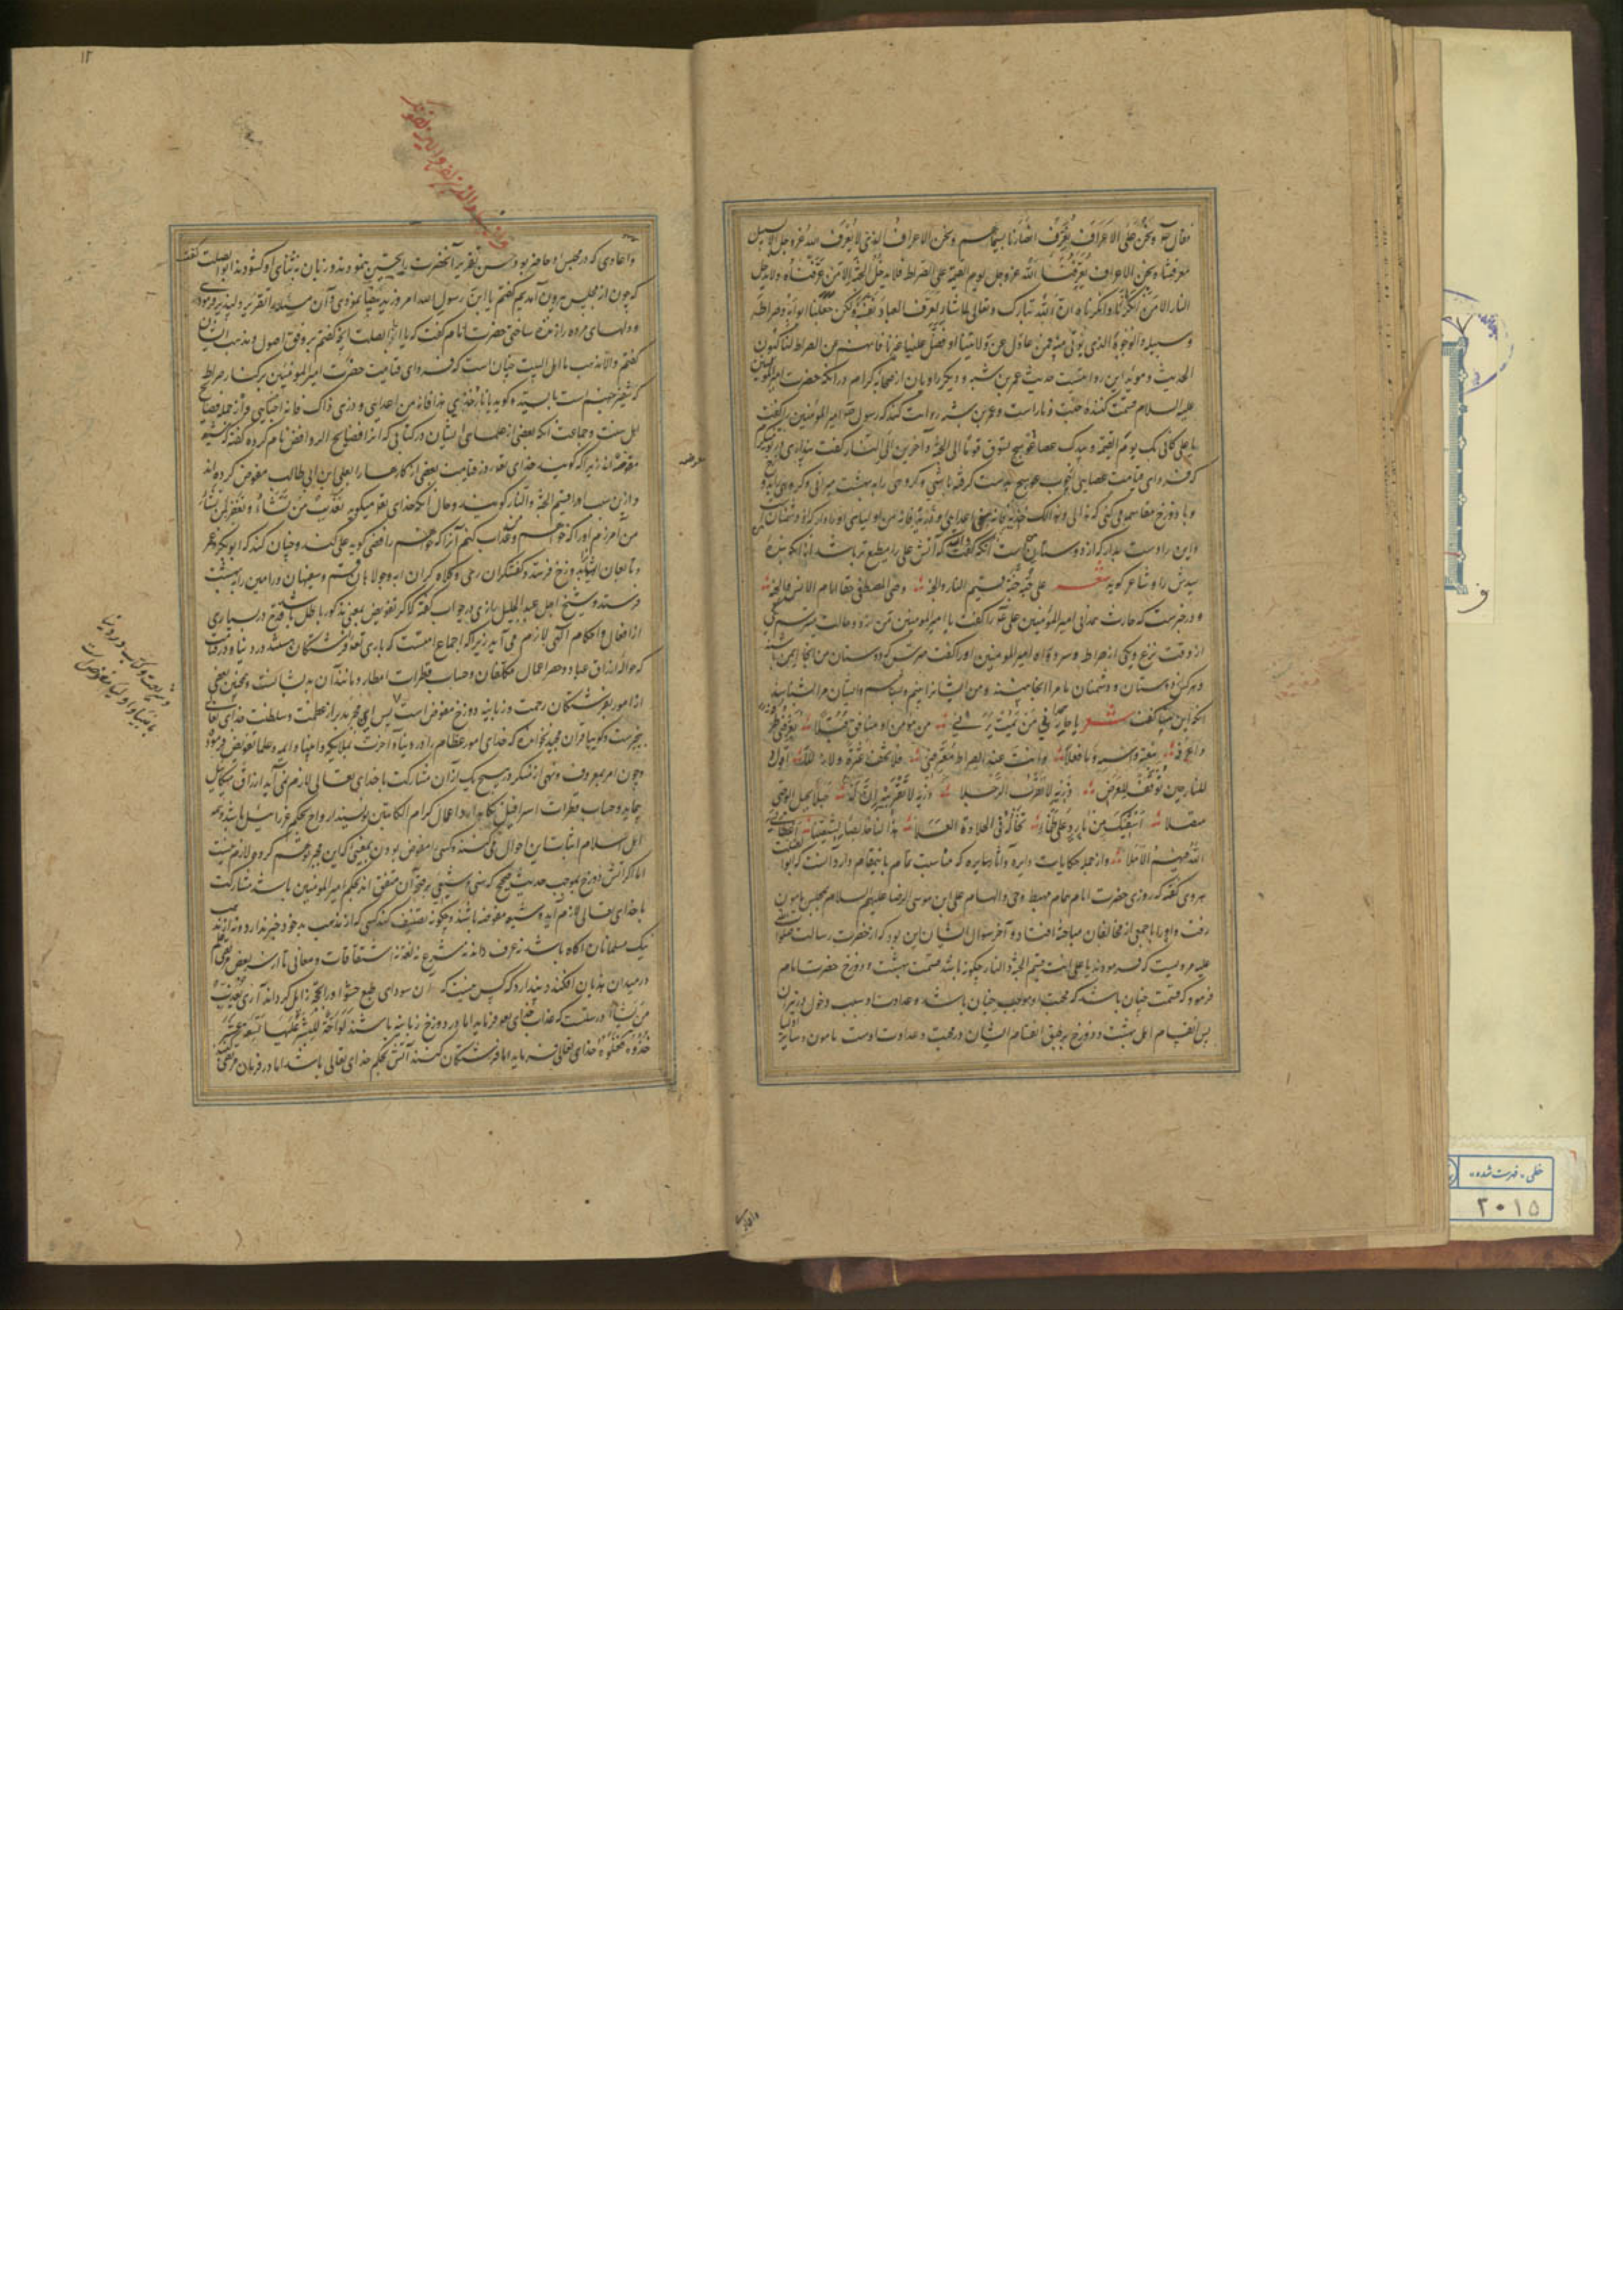 فقال نحن علی الاعراف نعرف انصارنا بسیماهم ونحن الاعراف الذین لا یعرف الله عز وجل الا بسبیل
معرفتنا ونحن الاعراف یعرفنا الله عز وجل یوم القیمة علی الصراط فلا یدخل الجنة الا من عرفناه ولا یدخل
النار الا من انکرنا وانکرناه ان الله تبارک وتعالی لو شاء لعرف العباد نفسه ولکن جعلنا ابوابه وصراطه
وسبیله والوجه الذی یؤتی منه فمن عدل عن ولایتنا او فضل علینا غیرنا فانهم عن الصراط لناکبون
الحدیث و مؤید این روایتست حدیث عمر بن شبه و دیگر راویان از صحابه کرام در آنکه حضرت امیر المؤمنین
علیه السلام قسمت کننده جنت و نار است و عمر بن شبه روایت کند که رسول امیر المؤمنین را گفت
یا علی کانی بک یوم القیمة و بیدک عصا عوسج تسوق قوما الی الجنة و آخرین الی النار
که فردای قیامت عصایی از چوب عوسج بدست گرفته باشی و گروهی را به بهشت میرانی و گروهی را
و با دوزخ مقاسمه می کنی که
واین را دوست بدار که از دوستان که آتش علی را مطیع تر باشد از آنکه بنده
سیدش را و شاعر گوید شعر علی حبه جنة قسیم النار والجنة وصی المصطفی حقا امام الانس والجنة
و در خبرست که حارث همدانی امیر المؤمنین علی را گفت یا امیر المؤمنین من از دو حالت میترسم یکی
از وقت نزع و یکی از صراط امیر المؤمنین او را گفت مترس که دوستان من آنجا ایمن باشند
و هر کس از دوستان و دشمنان ما مرا آنجا بیند و من ایشانرا بینم و شناسم و ایشان مرا شناسند
آنکه این بیتها گفت شعر یا حار همدان من یمت یرنی من مؤمن او منافق قبلا یعرفنی طرفه
واعرفه بنعته واسمه وما فعلا وانت عند الصراط معترضی فلا تخف عثرة ولا زللا اقول
للنار حین توقف للعرض ذریه لا تقربی الرجلا ذریه لا تقربیه ان له حبلا بحبل الوصی
متصلا اسقیک من بارد علی ظمأ تخاله فی الحلاوة العسلا هذا لنا خالصا لشیعتنا اعطانی
الله فیهم الاملا و از جمله حکایات دایره و آثار سایره که مناسبت تمام باین مقام دارد آنست که ابوالصلت
هروی گفته که روزی حضرت امام همام مهبط وحی والهام علی ابن موسی الرضا علیهم السلام بمجلس مامون
رفت و او را با جمعی از مخالفان مباحثه افتاد و آخر سؤال ایشان این بود که از حضرت رسالت صلوات
علیه مرویست که فرمودند یا علی انت قسیم الجنة والنار چگونه باشد قسمت بهشت و دوزخ حضرت امام
فرمود که قسمت چنان باشد که محبت او موجب جنان باشد و عداوت او سبب دخول نیران
پس انقسام اهل بهشت و دوزخ بر طبق انقسام ایشان در محبت و عداوت اوست مامون و سایر
۱۲
و اعادی که در مجلس او حاضر بودند حسن تقریر آنحضرت را تحسین نمودند و زبان به ثنای او گشودند ابوالصلت گفت
که چون از مجلس بیرون آمدیم گفتم یا ابن رسول الله امروز ید بیضا نمودی و آن مسئله را تقریر دلپذیر فرمودی
و دلهای مرده را زنده ساختی حضرت امام گفت که یا ابا الصلت آنچه گفتم بر وفق اصول و مذهب ایشان
گفتم والا مذهب ما اهل البیت چنان است که فردای قیامت حضرت امیر المؤمنین بر کنار صراط
که شفیر جهنم است بایستد و گوید یا نار خذی هذا فانه من اعدائی وذری ذاک فانه من احبائی و از جمله فضایح
اهل سنت و جماعت آنکه بعضی از علمای ایشان در کتابی که آنرا فضایح الروافض نام کرده گفته که شیعه
مفوضه اند زیرا که گویند خدای تعالی روز قیامت بعضی از کارها را بعلی بن ابی طالب مفوض کرده اند
و ازین سبب او را قسیم الجنة والنار گویند و حال آنکه خدای تعالی میگوید یعذب من یشاء و یغفر لمن یشاء
من آمرزم او را که خواهم و عذاب کنم آنرا که خواهم رافضی گوید علی کند و چنان کند که ابوبکر و عمر
و تابعان ایشانرا بدوزخ فرستد و کفشگران ری و کلاه گران آبه و جولاهان قم و سفیهان ورامین را به بهشت
فرستد و شیخ اجل عبد الجلیل رازی در جواب گفته که اگر تفویض بمعنی مذکور باطل باشد قدح در بسیاری
از افعال و احکام الهی لازم می آید زیرا که اجماع امتست که باری تعالی فرشتگان هستند در دنیا و در قیامت
که حواله ارزاق عباد و حصر اعمال مکلفان و حساب قطرات امطار و مانند آن بدیشانست و همچنین بعضی
از امور بفرشتگان رحمت و زبانیه دوزخ مفوض است پس این مجبر بدبر از عظمت و سلطنت خدای تعالی
بیخبرست و گوییا قران مجید نخوانده که خدای امور عظام را در دنیا و آخرت بملایکه و انبیا و ائمه و علما تفویض فرموده
و چون امر بمعروف و نهی از منکر و هیچ یک از آن مشارکت با خدای تعالی لازم نمی آید ارزاق میکائیل
پیماید و حساب قطرات اسرافیل نگاه دارد و اعمال کرام الکاتبین نویسند ارواح بحکم عزرائیل باشد و همه
اهل اسلام اثبات این احوال می کنند و کسی را مفوض بودن بمعنیی که این مجبر توهم کرده لازم نیست
اما اگر آتش دوزخ بموجب حدیث صحیح که سنی و شیعی بر صحت آن متفق اند بحکم امیر المؤمنین باشد مشارکت
با خدای تعالی لازم آید و شیعه مفوضه باشند و چگونه تصنیف کند کسی که از مذهب خود خبر ندارد و نه از مذهب
نیک مسلمانان آگاه باشد نه عرف داند نه شرع نه لغة نه اشتقاقات و معانی تا از سر بغض مرتضی علی
در میدان هذیان افکند و پندارد که کس نیست که آن سودای طبع حشو او را بحجة زایل گرداند آری یعذب
من یشاء درست که عذاب خدای تعالی فرماید اما در دوزخ زبانیه باشند لواحة للبشر علیها تسعة عشر
خذوه فغلوه خدای تعالی فرماید اما فرشتگان کنند آتش بحکم خدای تعالی باشد اما در فرمان مرتضی
شریعت و کتب در دنیا
بانبیا و اولیا مفوض است
خطی - فهرست شده
۲۰۱۵